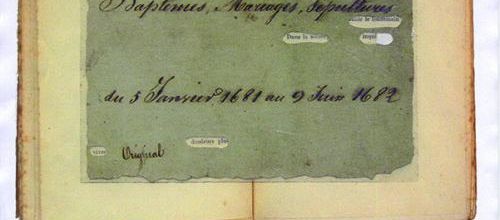 Baptêmes, Mariages, Sépultures
Dans la
du 5 Janvier 1681 au 9 Juin 1682
plus
Original